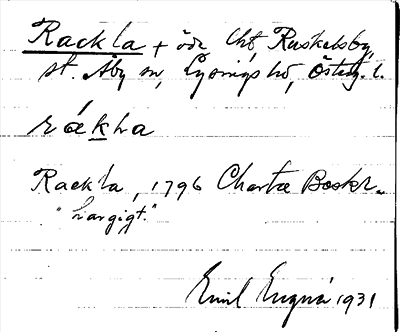 Rackla + öde tht, Ruskelsby,
St. Åby sn, Lysings hd, Östg. l.
rákla
Rackla, 1796 Chartæ Beskr.
"hargigt."
Emil 1931